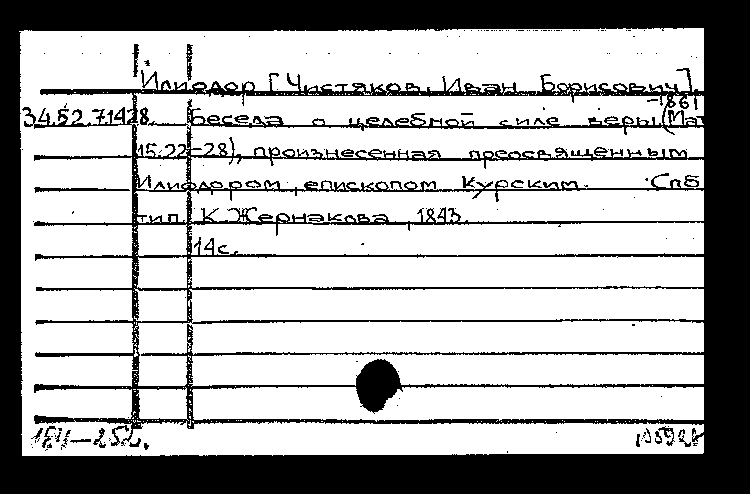 Илиодор [Чистяков, Иван Борисович],
-1861
34.52.7.1428. Беседа о целебной силе веры (Мат
15.22-28), произнесенная преосвященным
Илиодором, епископом Курским. Спб
тип. К. Жернакова, 1843.
14с.
184-252.